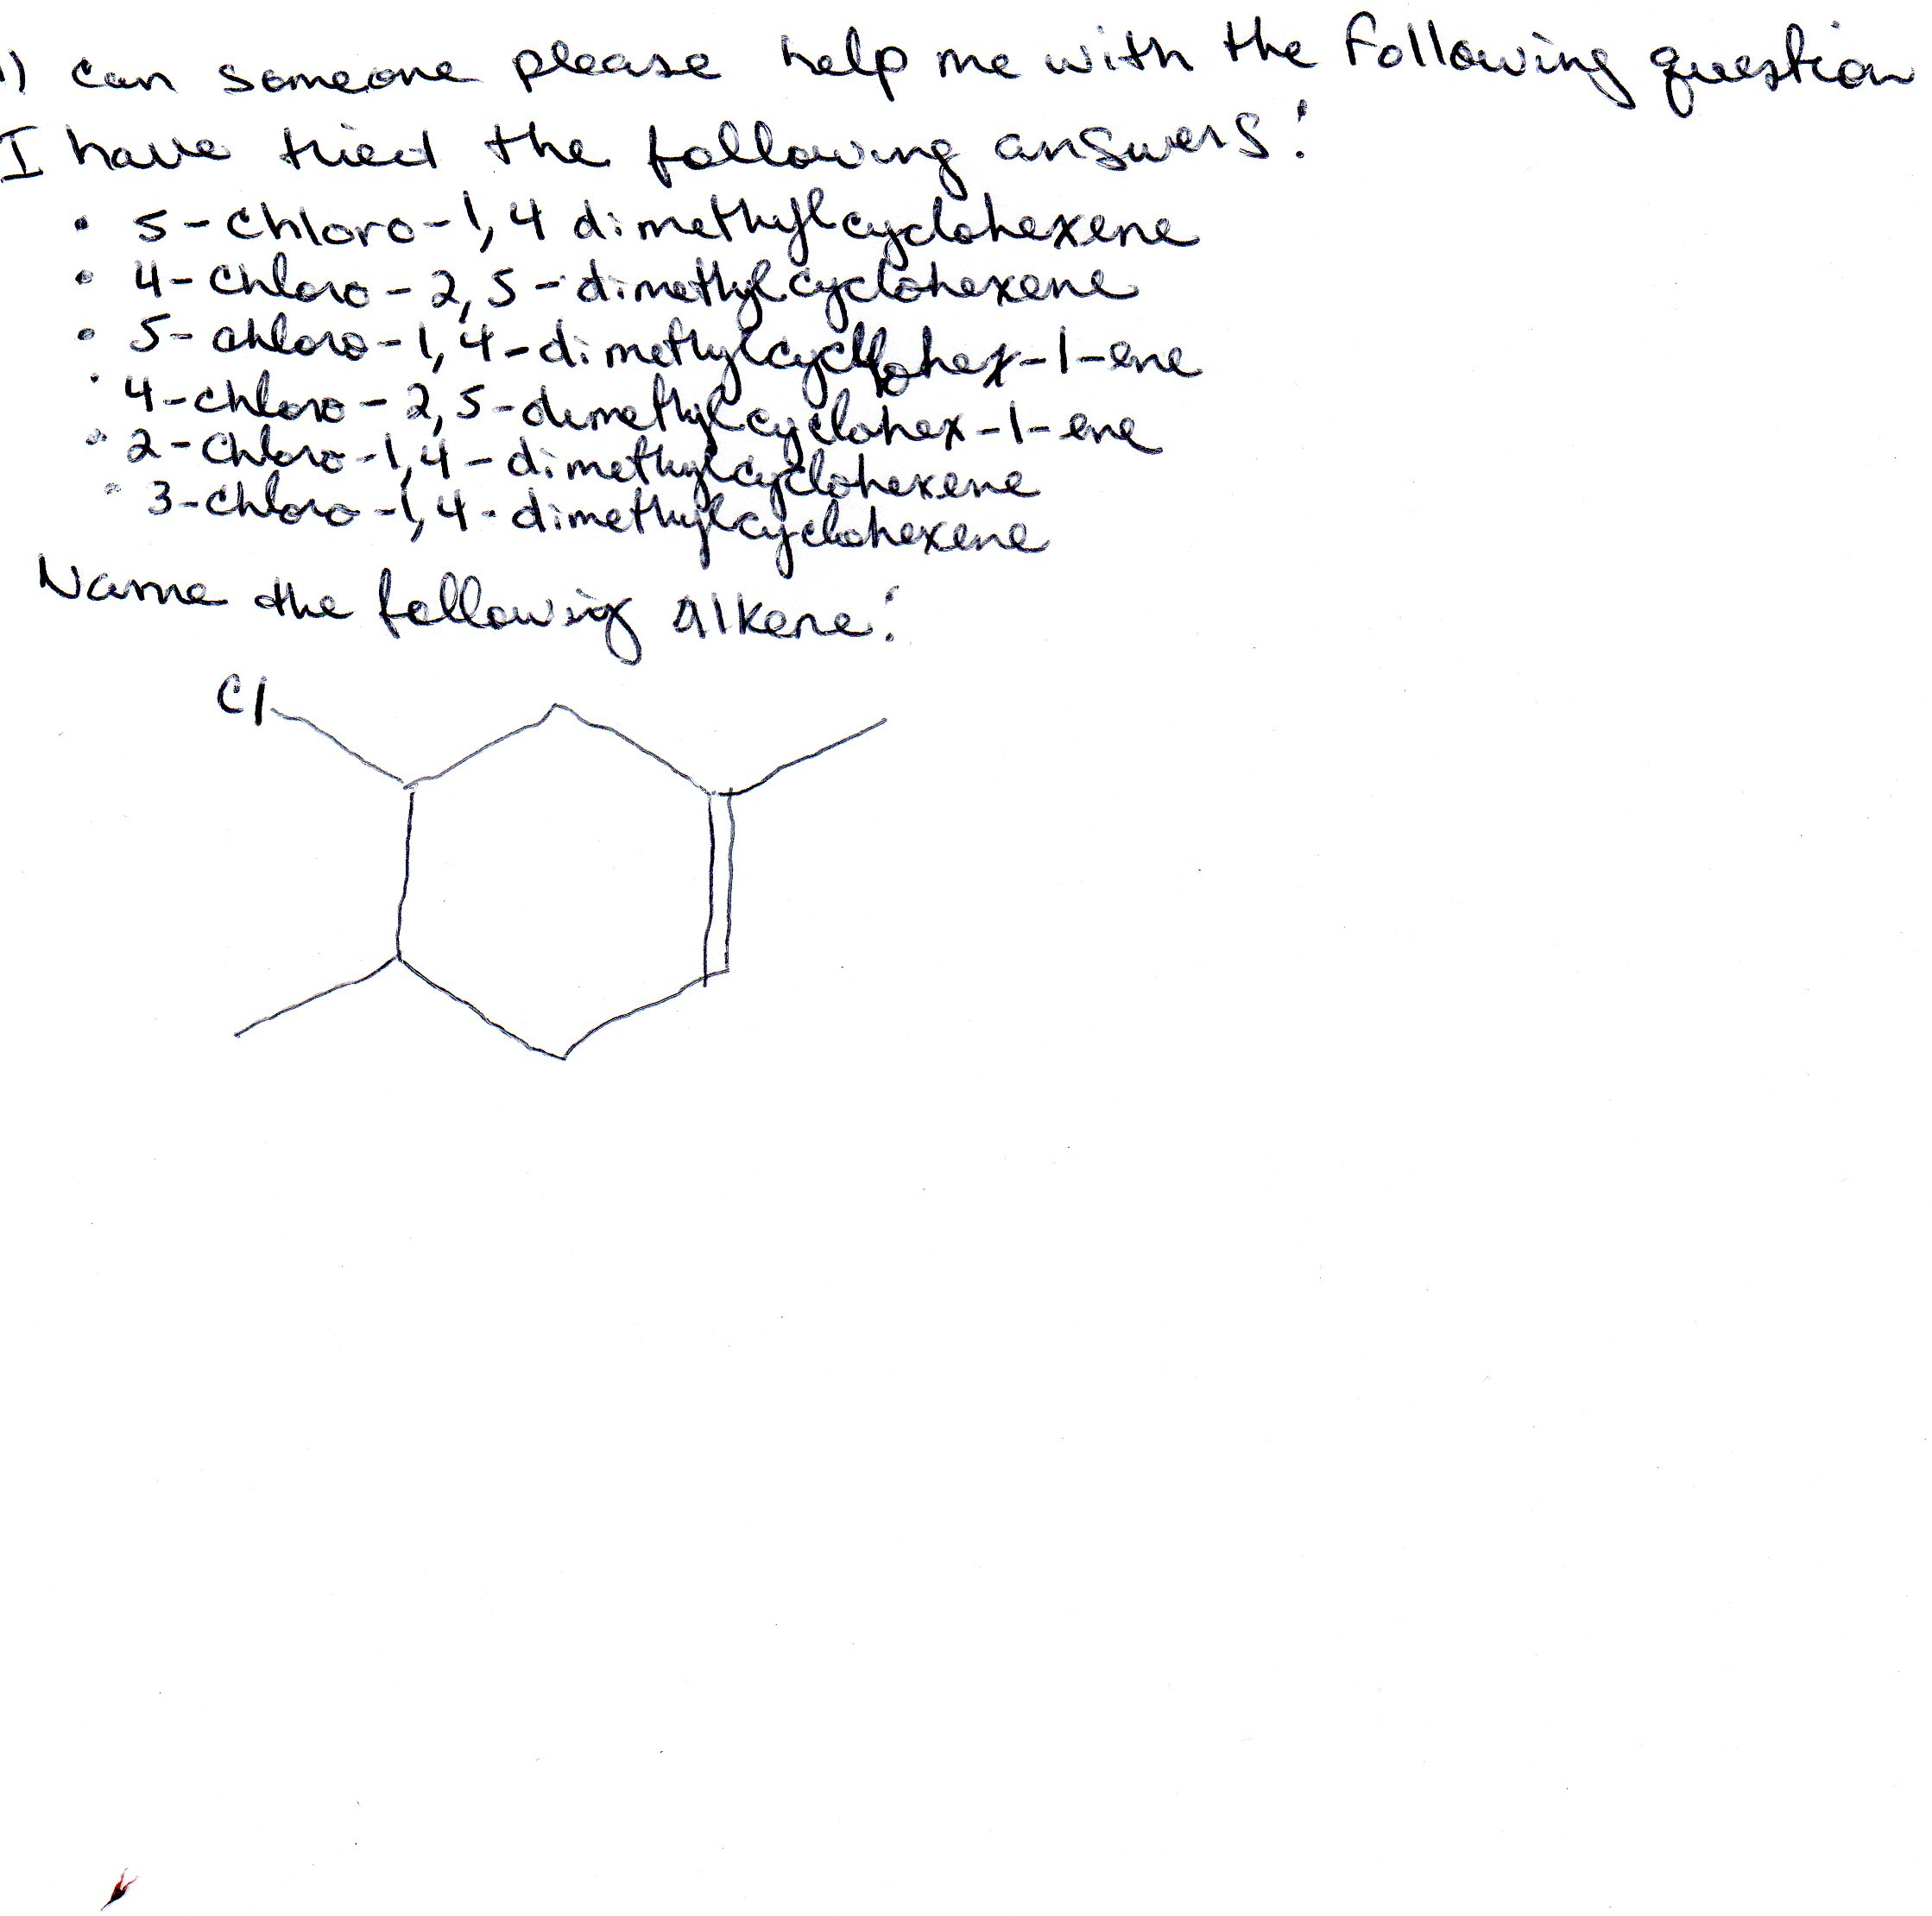 1) can someone please help me with the following question
I have tried the following answers:
• 5-Chloro-1,4 dimethylcyclohexene
• 4-Chloro-2,5-dimethylcyclohexene
• 5-chloro-1,4-dimethylcyclohex-1-ene
• 4-chloro-2,5-dimethylcyclohex-1-ene
• 2-Chloro-1,4-dimethylcyclohexene
• 3-Chloro-1,4-dimethylcyclohexene
Name the following Alkene:
Cl